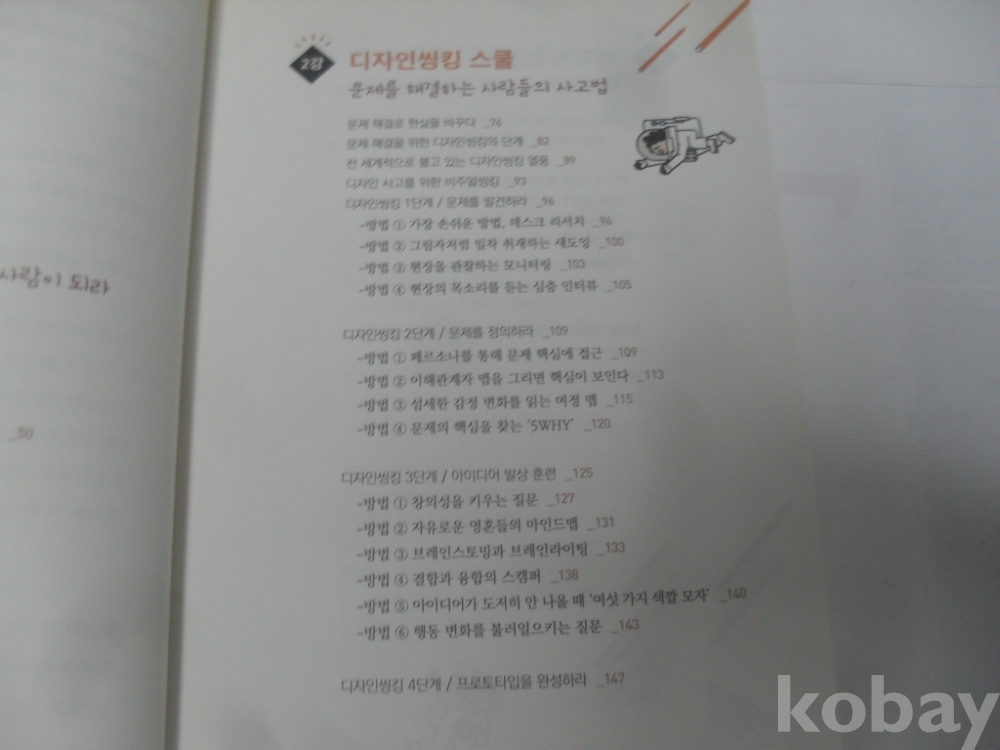 사람이 되라
_80
2강
디자인씽킹 스쿨
문제를 해결하는 사람들의 사고법
문제 해결로 현실을 바꾸다 _76
문제 해결을 위한 디자인씽킹의 단계 _82
전 세계적으로 불고 있는 디자인씽킹 열풍 _89
디자인 사고를 위한 비주얼씽킹 _93
디자인씽킹 1단계 / 문제를 발견하라 _96
-방법 ① 가장 손쉬운 방법, 데스크 리서치 _96
-방법 ② 그림자처럼 밀착 취재하는 섀도잉 _100
-방법 ③ 현장을 관찰하는 모니터링 _103
-방법 ④ 현장의 목소리를 듣는 심층 인터뷰 _105
디자인씽킹 2단계 / 문제를 정의하라 _109
-방법 ① 페르소나를 통해 문제 핵심에 접근 _109
-방법 ② 이해관계자 맵을 그리면 핵심이 보인다 _113
-방법 ③ 섬세한 감정 변화를 읽는 여정 맵 _115
-방법 ④ 문제의 핵심을 찾는 '5WHY' _120
디자인씽킹 3단계 / 아이디어 발상 훈련 _125
-방법 ① 창의성을 키우는 질문 _127
-방법 ② 자유로운 영혼들의 마인드맵 _131
-방법 ③ 브레인스토밍과 브레인라이팅 _133
-방법 ④ 결합과 융합의 스캠퍼 _138
-방법 ⑤ 아이디어가 도저히 안 나올 때 '여섯 가지 색깔 모자' _140
-방법 ⑥ 행동 변화를 불러일으키는 질문 _143
디자인씽킹 4단계 / 프로토타입을 완성하라 _147
kobay